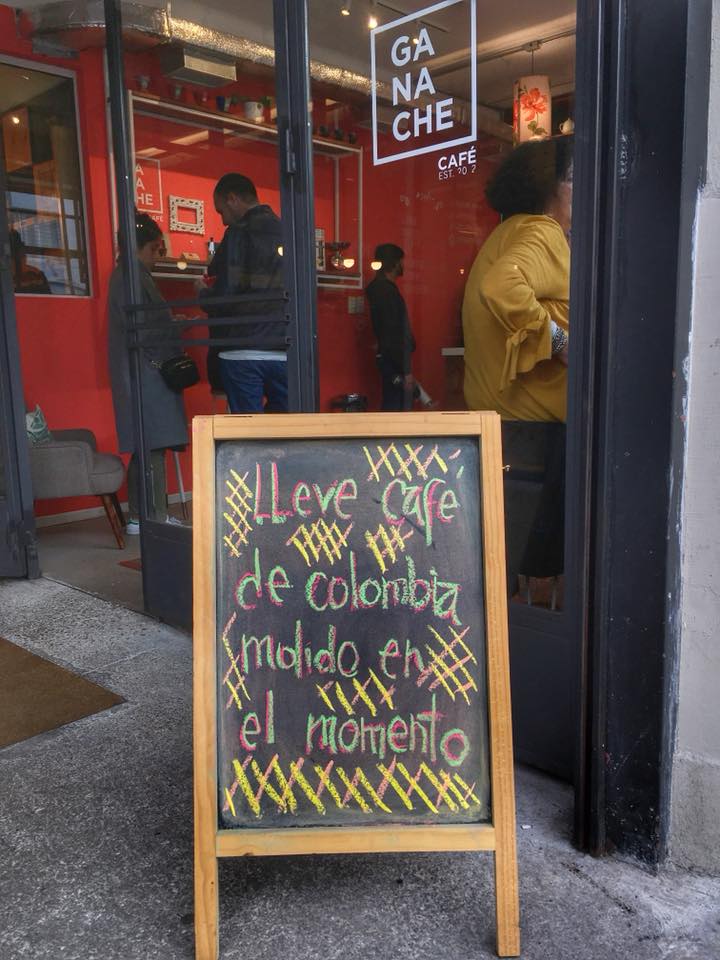 GA
NA
CHE
CAFÉ
Lleve café
de colombia
molido en
el momento